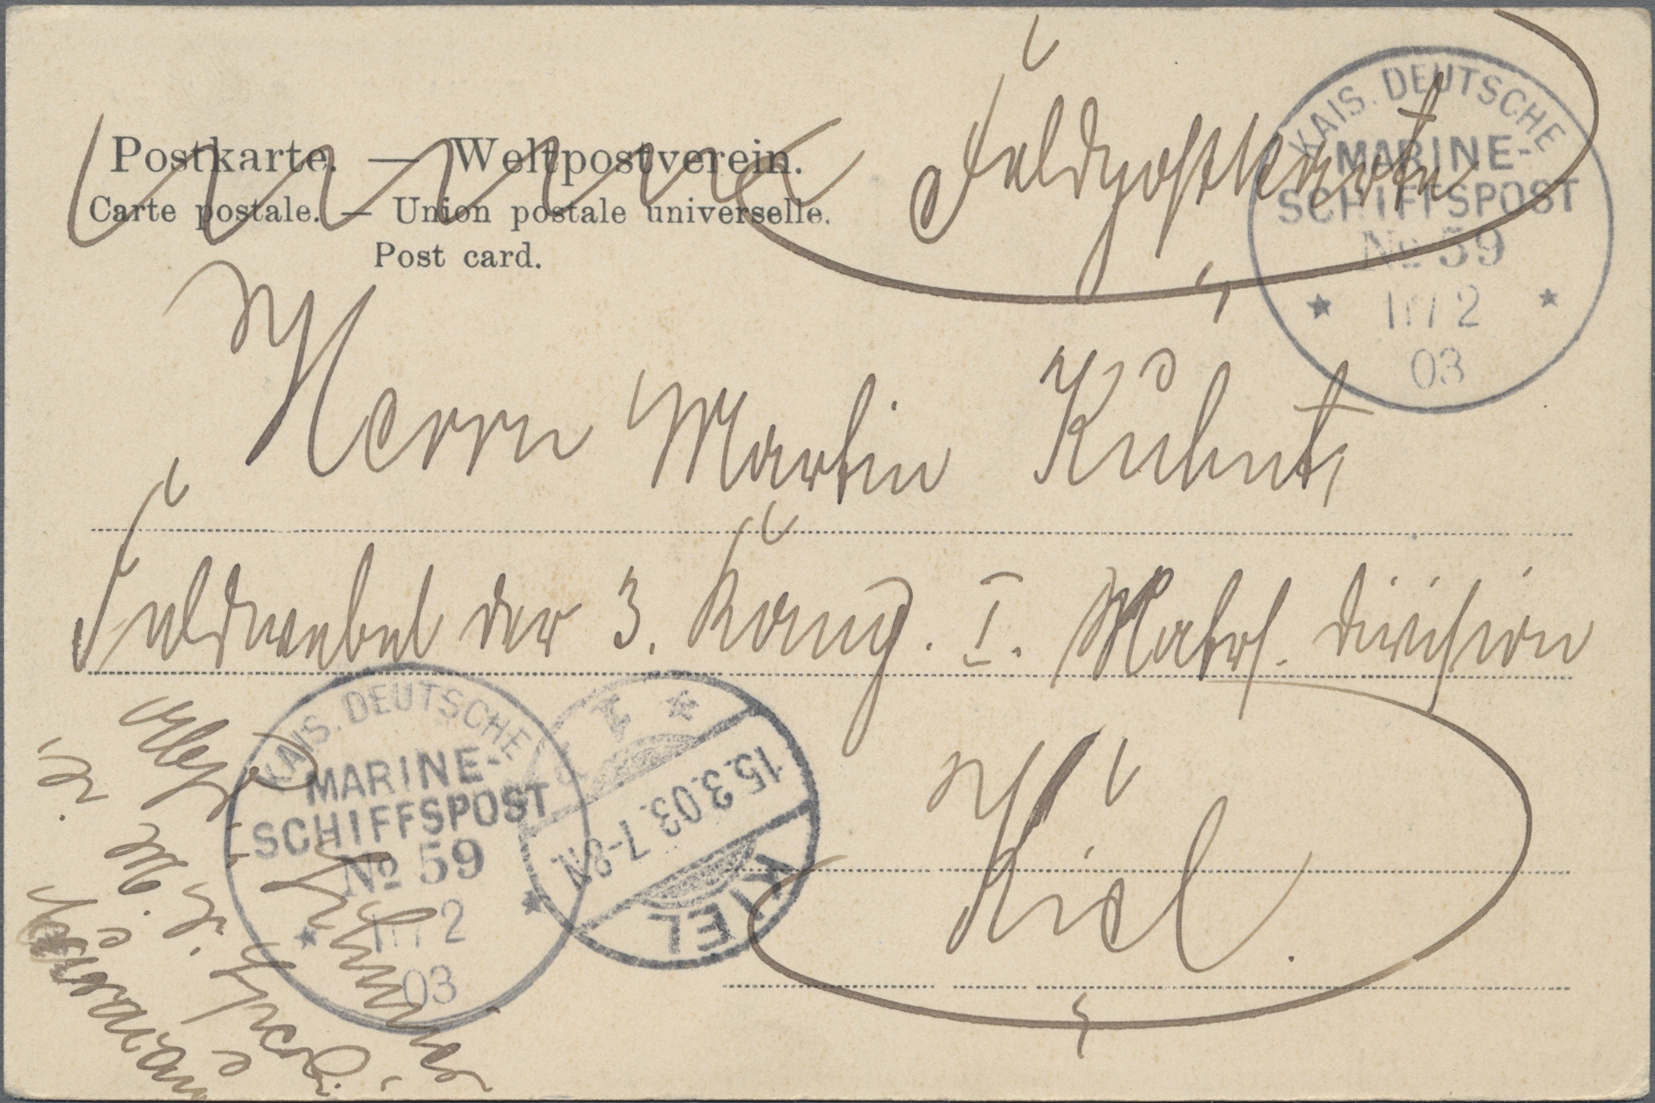 Postkarte. — Weltpostverein.
Carte postale. — Union postale universelle.
Post card.
Feldpostkarte
KAIS. DEUTSCHE
MARINE-
SCHIFFSPOST
No 59
2
03
Herrn Martin Kühnt,
Feldwebel der 3. Komp. I. Matrs. Division
Kiel.
KAIS. DEUTSCHE
MARINE-
SCHIFFSPOST
No 59
2
03
15.3.03.7-8N.
KIEL
S. M. S.